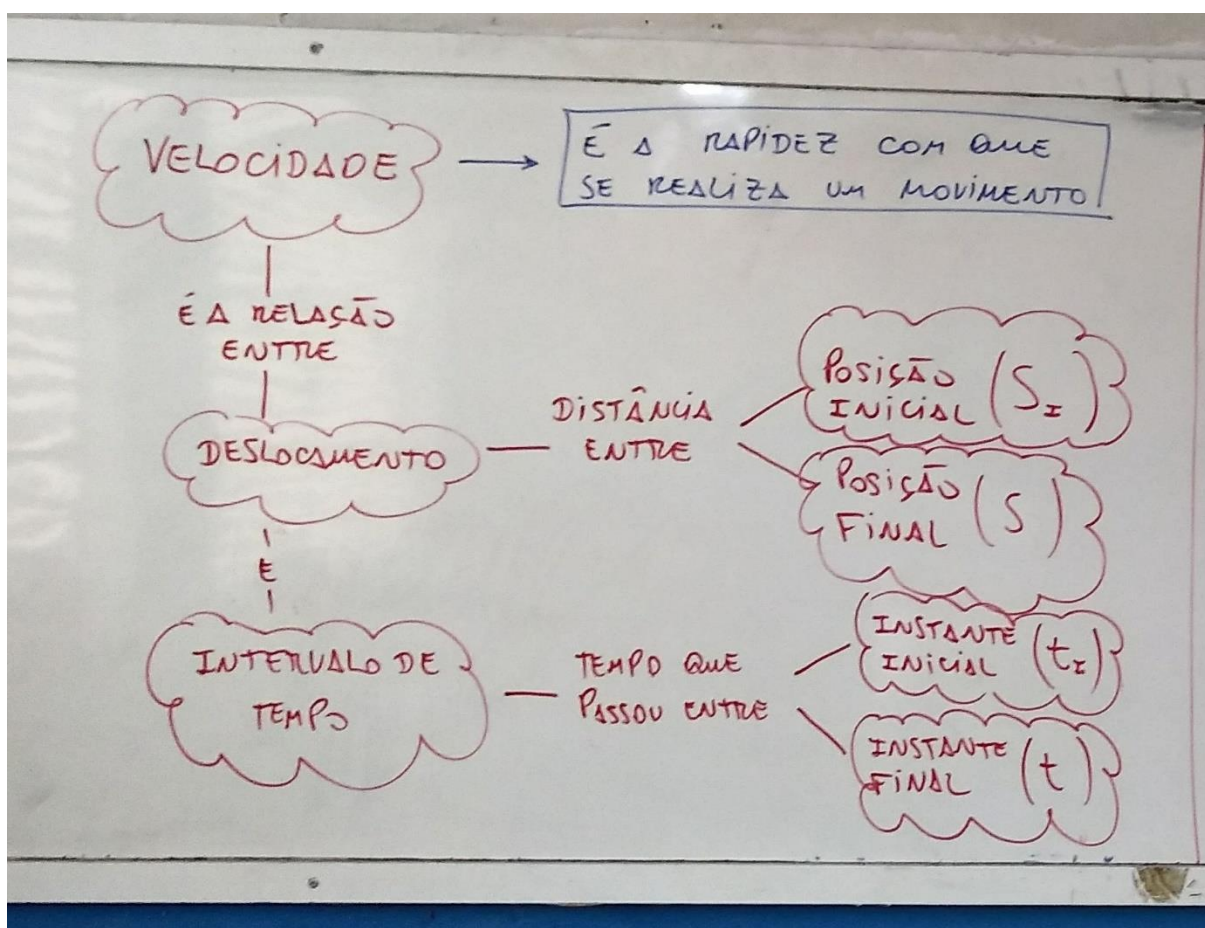 VELOCIDADE
É A RAPIDEZ COM QUE
SE REALIZA UM MOVIMENTO
É A RELAÇÃO
ENTRE
DESLOCAMENTO
DISTÂNCIA
ENTRE
POSIÇÃO
INICIAL (S_I)
POSIÇÃO
FINAL (S)
E
INTERVALO DE
TEMPO
TEMPO QUE
PASSOU ENTRE
INSTANTE
INICIAL (t_I)
INSTANTE
FINAL (t)